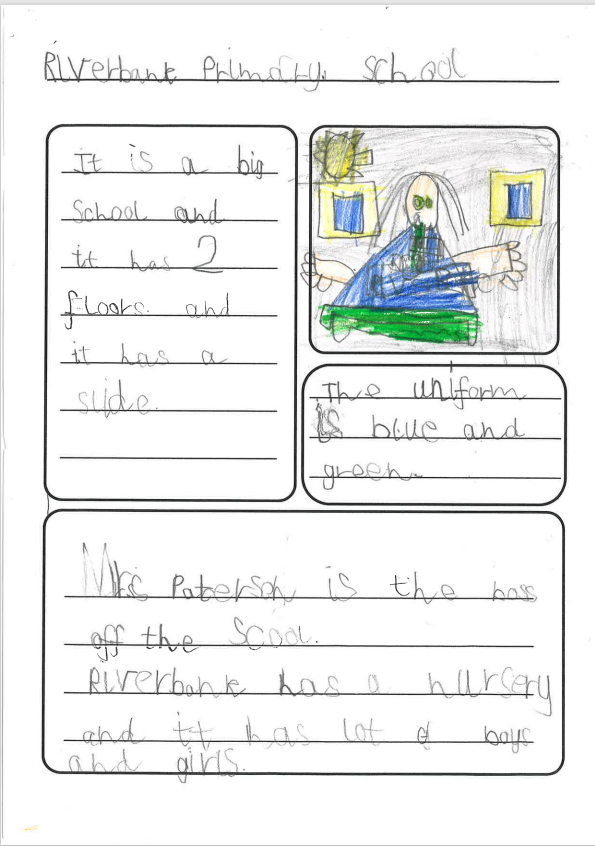 Riverbank Primary School
It is a big
School and
it has 2
floors. and
it has a
slide.
The uniform
is blue and
green.
Mrs Paterson is the boss
off the scool.
Riverbank has a nursery
and it has lot of boys
and girls.